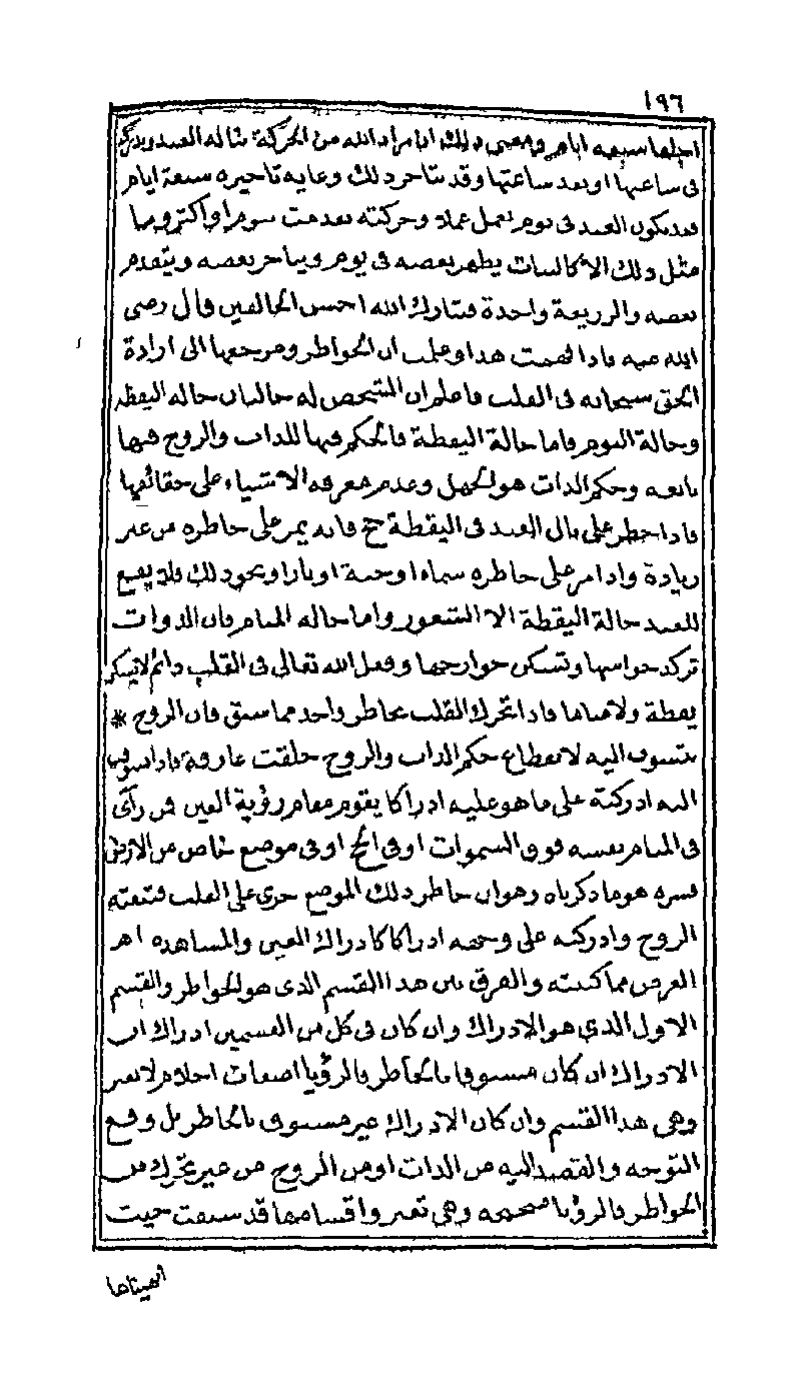 ١٩٦
اجلها سبعه ايام ومعنى ذلك ان مراد الله من الحركة يناله العبد ويدركه
فى ساعتها او بعد ساعتها وقد يتاخر ذلك وغاية تاخيره سبعة ايام
فقد يكون العبد فى يوم يعمل عملا وحركته تقدمت بيوم او اكثر وما
مثل ذلك الا كالنبات يظهر بعضه فى يوم ويتاخر بعضه ويتقدم
بعضه والزريعة واحدة فتبارك الله احسن الخالقين قال رضى
الله عنه فاذا فهمت هذا وعلمت ان الخواطر ومرجعها الى ارادة
الحق سبحانه فى القلب فاعلم ان الشخص له حالتان حالة اليقظة
وحالة النوم فاما حالة اليقظة فالحكم فيها للذات والروح فيها
تابعه وحكم الذات هو الجهل وعدم معرفه الاشياء على حقائقها
فاذا خطر على بال العبد فى اليقظة حج فانه يمر على خاطره من غير
زيادة واذا مر على خاطره سماء او جنة او نار او نحو ذلك فلا يقع
للعبد حالة اليقظة الا الشعور واما حاله المنام فان الذوات
تركد حواسها وتسكن جوارحها وفعل الله تعالى فى القلب دائم لا يسكن
يقظة ولا مناما فاذا تحرك القلب بخاطر واحد مما سبق فان الروح *
تتشوف اليه لانقطاع حكم الذات والروح خلقت عارفة فاذا تشوفت
اليه ادركته على ما هو عليه ادراكا يقوم مقام رؤية العين فمن رأى
فى المنام نفسه فوق السموات او فى الحج او فى موضع خاص من الارض
فسره هو ما ذكرناه وهو ان خاطر ذلك الموضع جرى على القلب فتبعته
الروح وادركته على وجهه ادراكا كادراك العين والمشاهده اهـ
الغرض مما كتبته والفرق بين هذا القسم الذى هو الخواطر والقسم
الاول الذى هو الادراك وان كان فى كل من القسمين ادراك ان
الادراك ان كان مسبوقا بالخاطر فالرؤيا اضغاث احلام لا تعبر
وهى هذا القسم وان كان الادراك غير مسبوق بالخاطر بل وقع
التوجه والقصد اليه من الذات او من الروح من غير تحرك من
الخواطر فالرؤيا صحيحه وهى تعبر واقسامها قد سبقت حيث
انهيناها